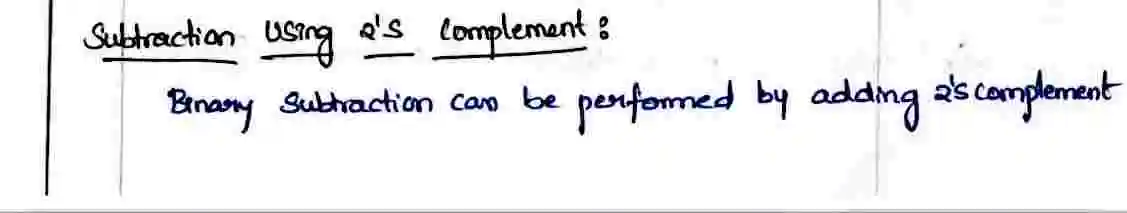 Subtraction Using 2's Complement :
Binary Subtraction can be performed by adding 2's complement